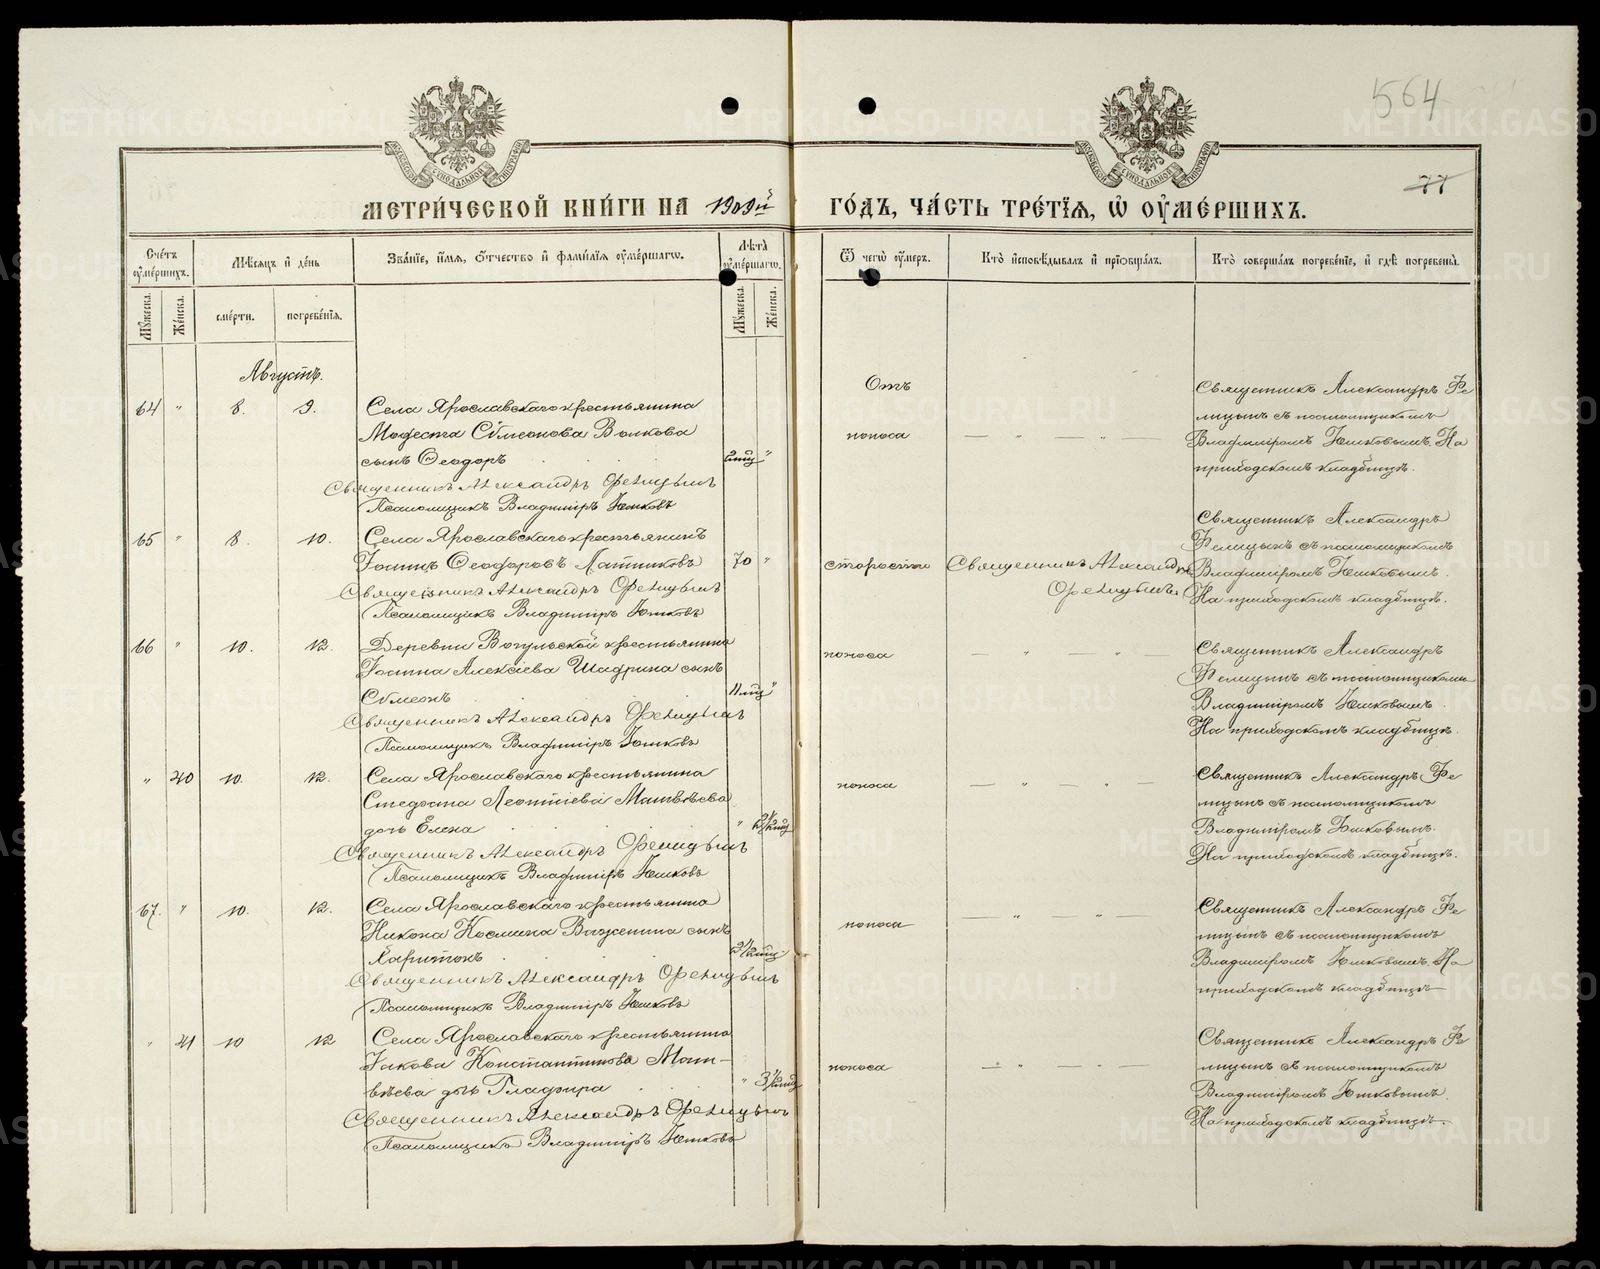 564
77
МЕТРИ́ЧЕСКОЙ КНИ́ГИ НА 1909й ГО́ДЪ, ЧА́СТЬ ТРЕ́ТІѦ, Ѡ҆ ОУ҆МЕ́РШИХЪ.
Сче́тъ оу҆ме́ршихъ.
Мѣ́сяцъ и҆ де́нь
Зва́ніе, и҆́мя, ѻ҆́тчество и҆ фами́лія оу҆ме́ршагѡ.
Лѣ́та оу҆ме́ршагѡ.
Ѿ чегѡ̀ оу҆́меръ.
Кто̀ и҆сповѣ́дывалъ и҆ прїѡбща́лъ.
Кто̀ соверша́лъ погребе́нїе, и҆ гдѣ̀ погребены̀.
Мꙋ́жеска.
Же́нска.
сме́рти.
погребе́нїя.
Мꙋ́жеска.
Же́нска.
Августъ.
64 " 8. 9. Села Ярославскаго крестьянина
Модеста Сѵмеонова Волкова
сынъ Ѳеодоръ
Священникъ Александръ Фелицынъ
Псаломщикъ Владиміръ Юшковъ
Отъ
поноса
Священникъ Александръ Фе
лицынъ съ псаломщикомъ
Владиміромъ Юшковымъ. На
приходскомъ кладбищѣ.
65 " 8. 10. Села Ярославскаго крестьянинъ
Іоаннъ Ѳеодоровъ Латниковъ 70 "
Священникъ Александръ Фелицынъ
Псаломщикъ Владиміръ Юшковъ
старости
Священникъ Александръ
Фелицынъ.
Священникъ Александръ
Фелицынъ съ псаломщикомъ
Владиміромъ Юшковымъ.
На приходскомъ кладбищѣ.
66 " 10. 12. Деревни Вогульской крестьянина
Іоанна Алексіева Шадрина сынъ
Сѵмеонъ 11 мц "
Священникъ Александръ Фелицынъ
Псаломщикъ Владиміръ Юшковъ
поноса
Священникъ Александръ
Фелицынъ съ псаломщикомъ
Владиміромъ Юшковымъ.
На приходскомъ кладбищѣ.
" 40 10. 12. Села Ярославскаго крестьянина
Леонтіева Матвѣева
дочь Елена
Священникъ Александръ Фелицынъ
Псаломщикъ Владиміръ Юшковъ
поноса
Священникъ Александръ Фе
лицынъ съ псаломщикомъ
Владиміромъ Юшковымъ.
На приходскомъ кладбищѣ.
67. " 10. 12. Села Ярославскаго крестьянина
Никона Космина Важенина сынъ
Харитонъ
Священникъ Александръ Фелицынъ
Псаломщикъ Владиміръ Юшковъ
поноса
Священникъ Александръ Фе
лицынъ съ псаломщикомъ
Владиміромъ Юшковымъ. На
приходскомъ кладбищѣ
" 41 10 12 Села Ярославскаго крестьянина
Іакова Константинова Мат-
вѣева дочь Глафира
Священникъ Александръ Фелицынъ
Псаломщикъ Владиміръ Юшковъ
поноса
Священникъ Александръ Фе
лицынъ съ псаломщикомъ
Владиміромъ Юшковымъ.
На приходскомъ кладбищѣ.
METRIKI.GASO-URAL.RU